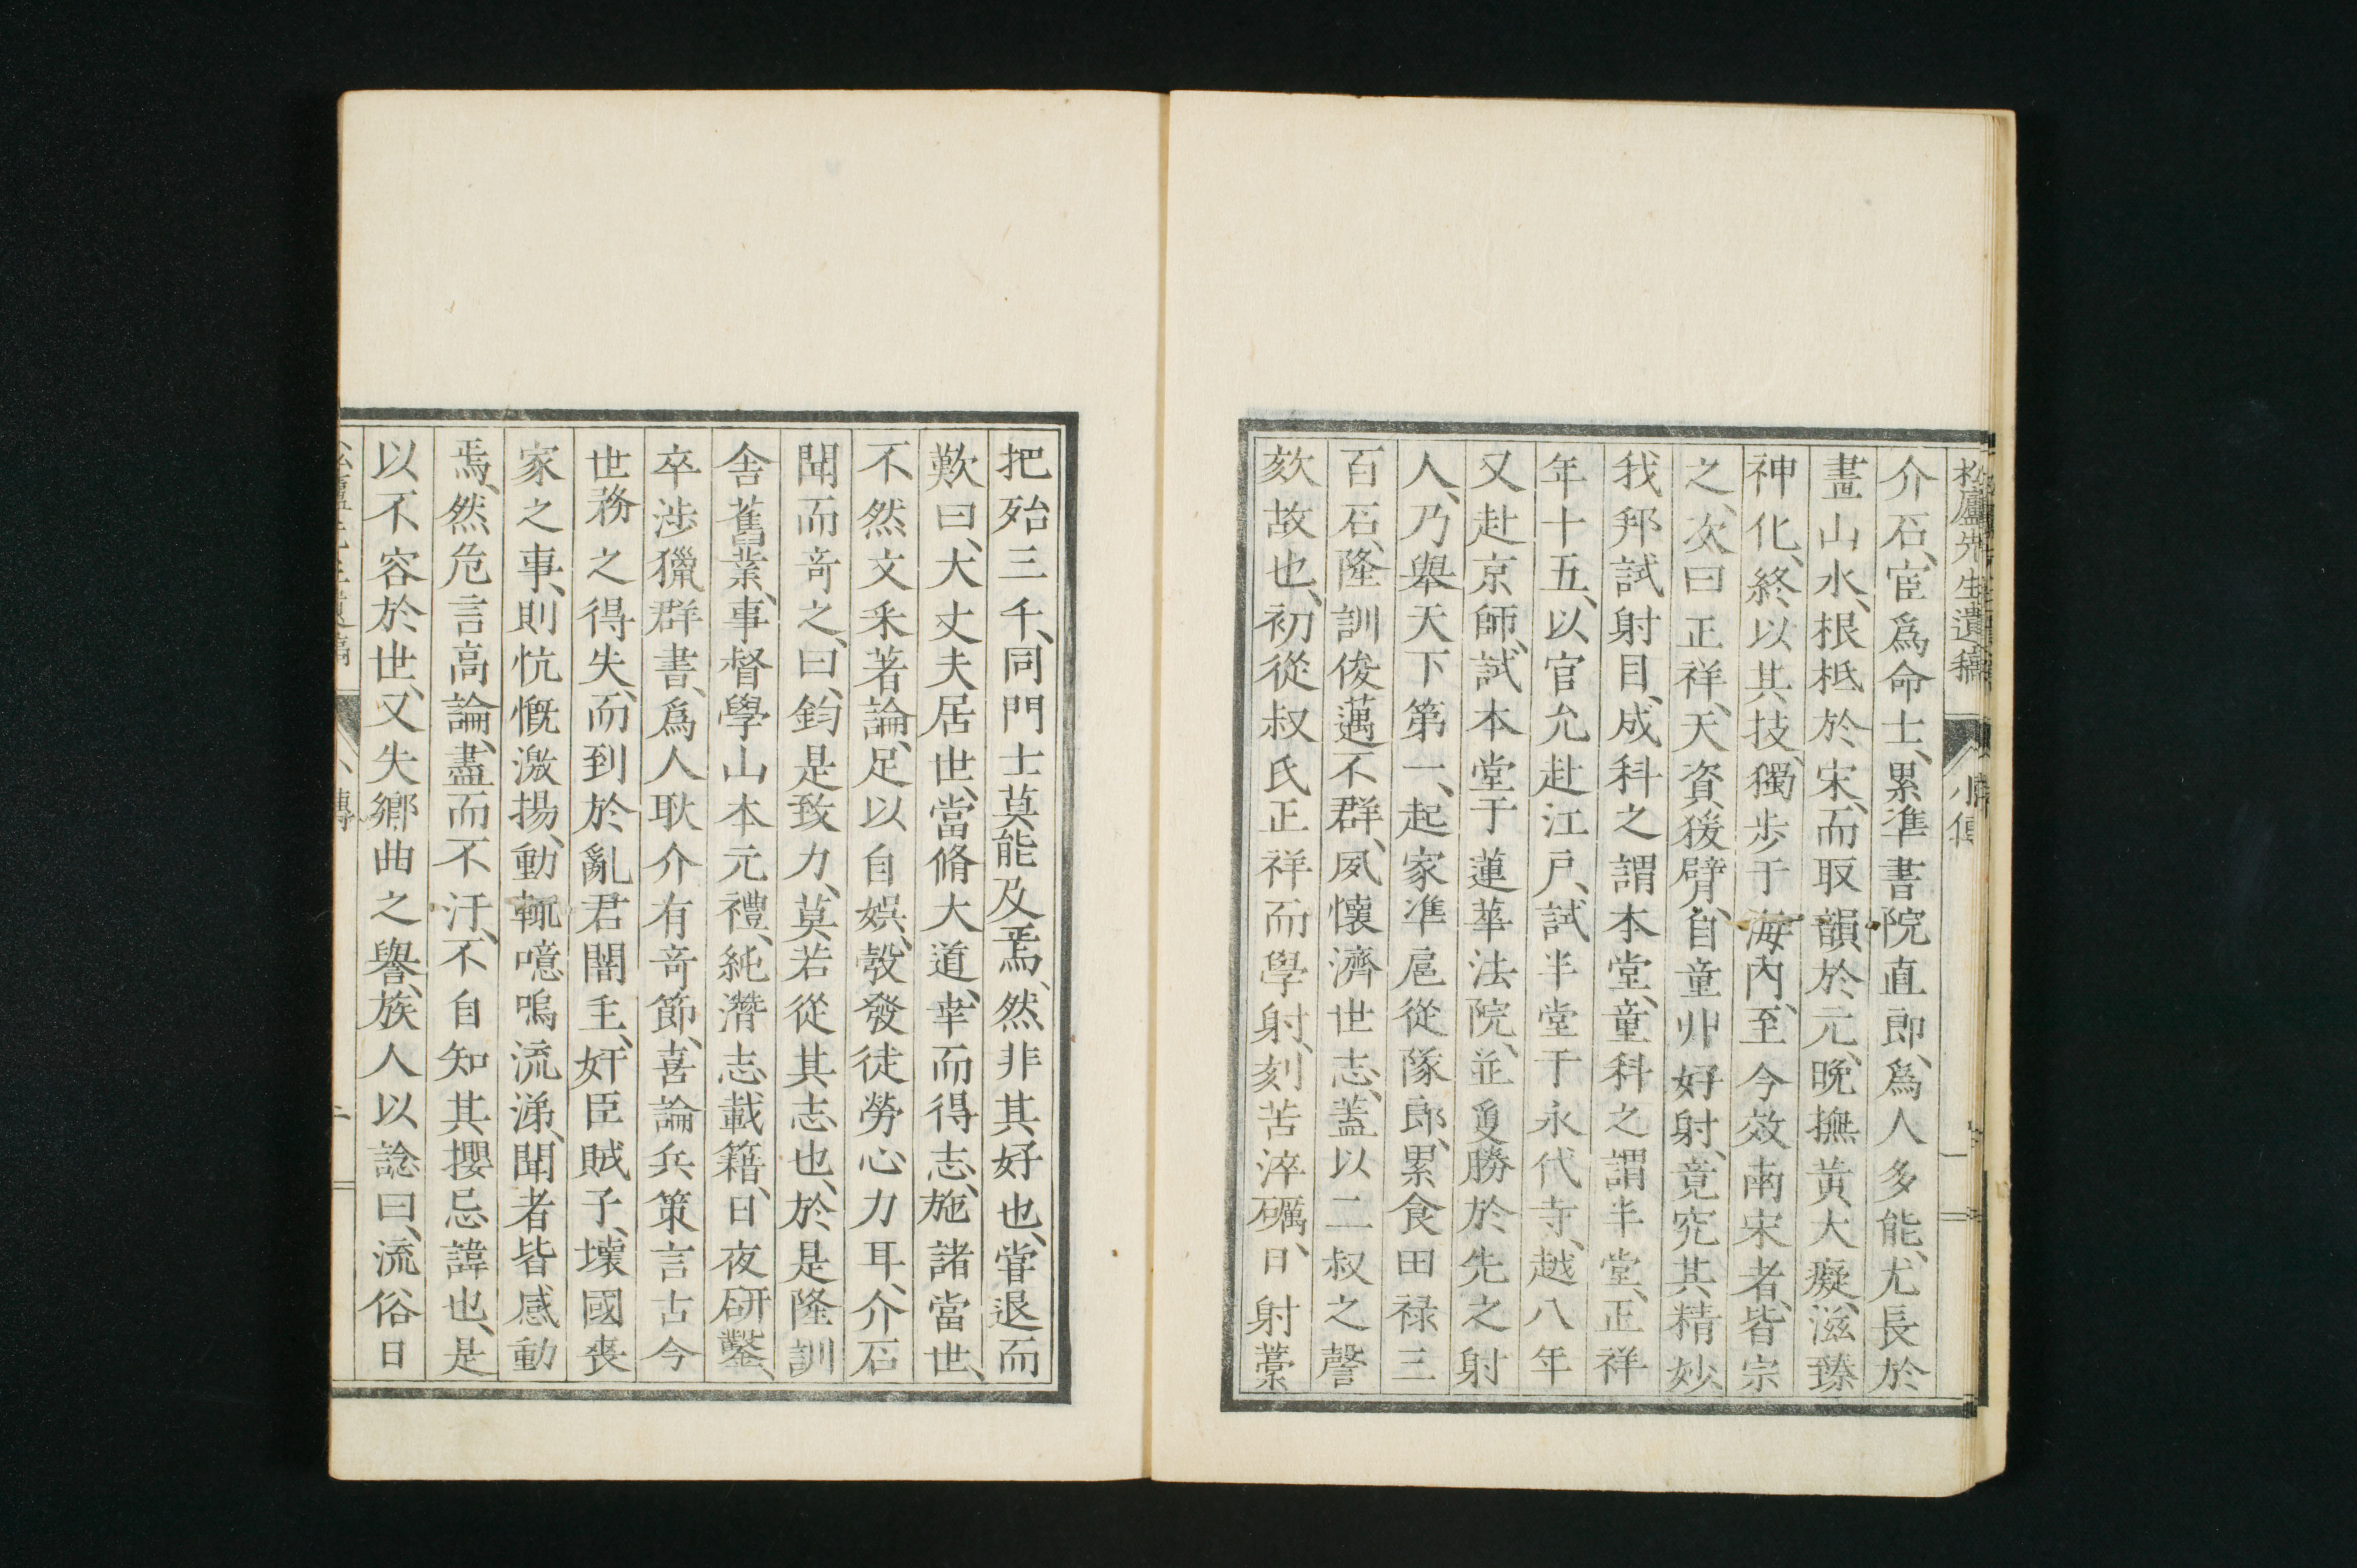 松廬先生遺稿 小傳 一
介石、宦爲命士、累準書院直郎、爲人多能、尤長於
畫山水、根柢於宋、而取韻於元、晩撫黃大癡、滋臻
神化、終以其技、獨步于海內、至今效南宋者、皆宗
之、次曰正祥、天資猨臂、自童丱好射、竟究其精妙
我邦試射目、成科之謂本堂、童科之謂半堂、正祥
年十五、以官允赴江戶、試半堂于永代寺、越八年
又赴京師、試本堂于蓮華法院、並敻勝於先之射
人、乃擧天下第一、起家準扈從隊郎、累食田祿三
百石、隆訓俊邁不群、夙懷濟世志、蓋以二叔之謦
欬故也、初從叔氏正祥而學射、刻苦淬礪、日射藁
把殆三千、同門士莫能及焉、然非其好也、甞退而
歎曰、大丈夫居世、當脩大道、幸而得志、施諸當世、
不然文采著論、足以自娛、彀發徒勞心力耳、介石
聞而奇之、曰、鈞是致力、莫若從其志也、於是隆訓
舍舊業、事督學山本元禮、純潛志載籍、日夜研鑿、
卒涉獵群書、爲人耿介有奇節、喜論兵策言古今
世務之得失、而到於亂君闇主、奸臣賊子、壞國喪
家之事、則忼慨激揚、動輒噫嗚流涕、聞者皆感動
焉、然危言高論、盡而不汙、不自知其攖忌諱也、是
以不容於世、又失鄉曲之譽、族人以諗曰、流俗日
松廬先生遺稿 小傳 二